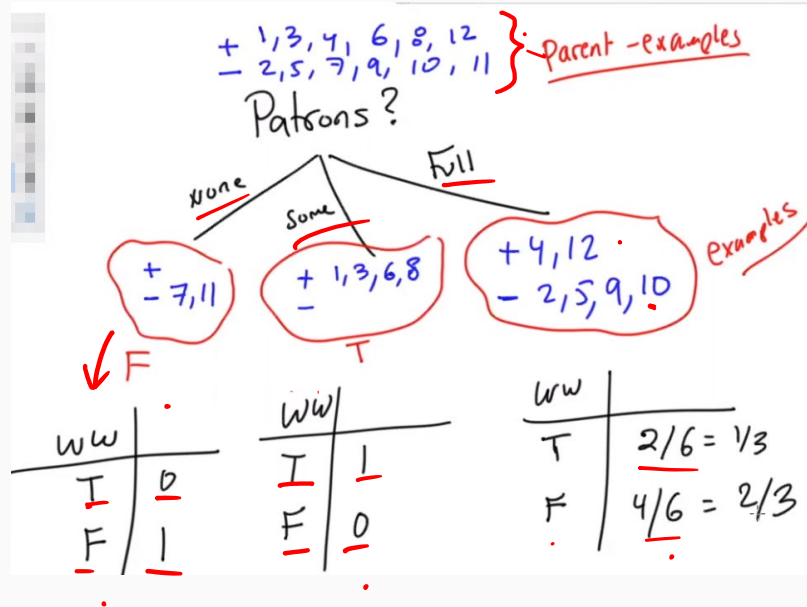 + 1,3,4, 6,8,12
- 2,5,7,9, 10,11
Parent-examples
Patrons?
None
Some
Full
+
- 7,11
+ 1,3,6,8
-
+ 4,12
- 2,5,9,10
examples
F
T
WW
T 0
F 1
WW
T 1
F 0
WW
T 2/6 = 1/3
F 4/6 = 2/3